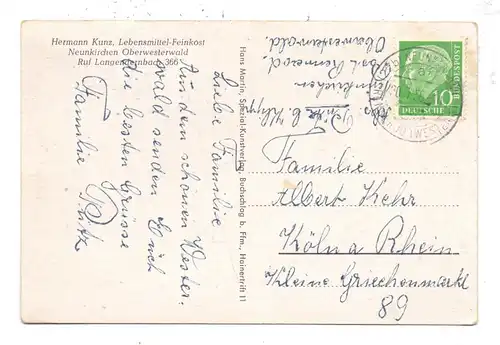 Hermann Kunz, Lebensmittel-Feinkost
Neunkirchen Oberwesterwald
Ruf Langendernbach 366
Liebe Familie
Aus dem schönen Wester-
wald senden Euch
die besten Grüsse
Familie Pütz
Hans Martin, Spezial-Kunstverlag, Buchschlag b. Ffm., Hainertrift 11
Abs.
Neunkirchen
Post Rennerod,
Oberwesterwald.
DEUTSCHE
BUNDESPOST
10
Familie
Albert Kehr
Köln a Rhein
Kleine Griechenmarkt
89